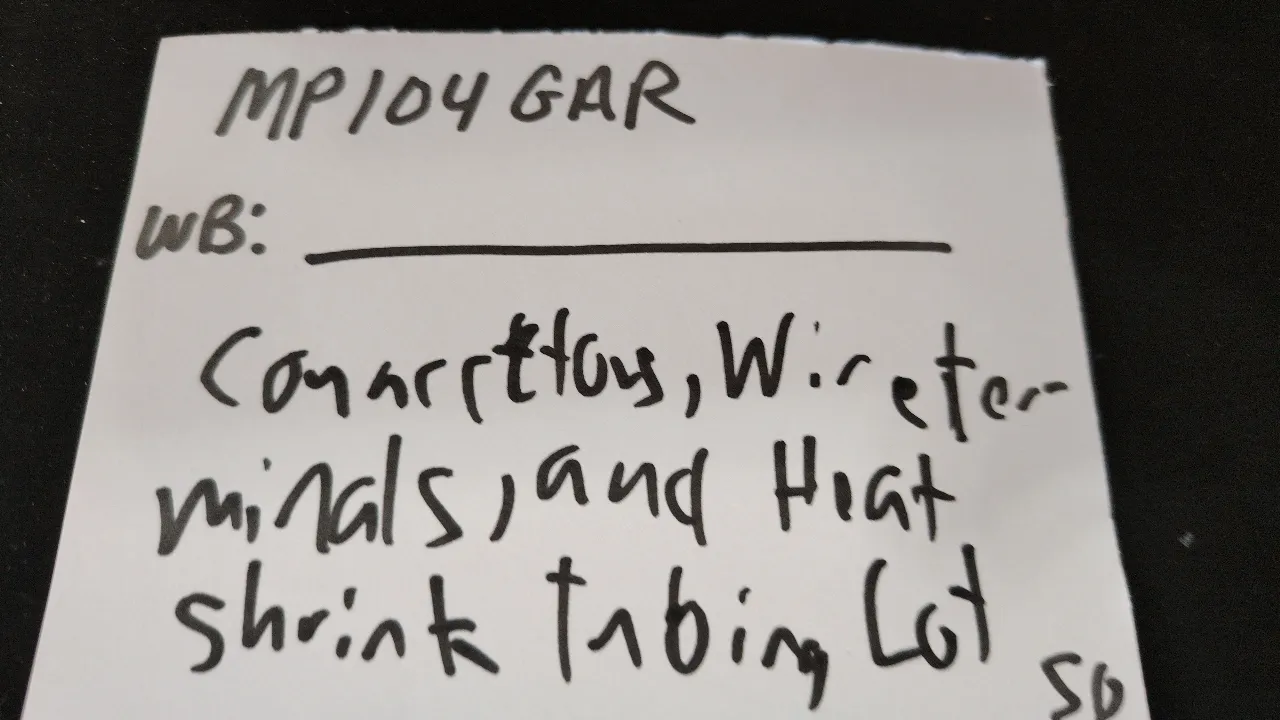 MP104 GAR
WB:
Connecttors, Wire ter-
minals, and Heat
shrink Tubing Lot
SO